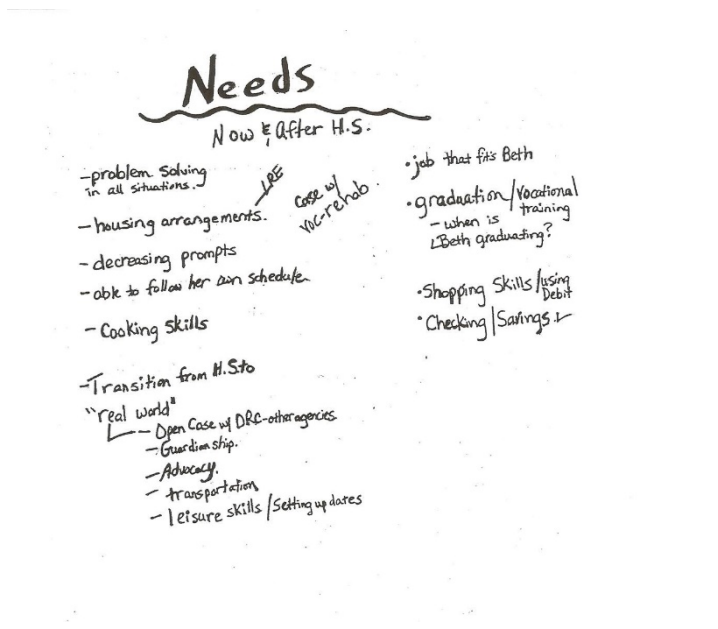 Needs
Now & After H.S.
-problem Solving
in all situations.
- housing arrangements. - LRE
case w/
voc-rehab.
- decreasing prompts
- able to follow her own schedule
- Cooking Skills
-Transition from H.S to
"real world"
- Open Case w/ DRC-other agencies
- Guardianship.
- Advocacy.
- transportation
- leisure skills / Setting up dates
• job that fits Beth
• graduation/Vocational
training
- when is
Beth graduating?
• Shopping Skills/using
Debit
• Checking/Savings.